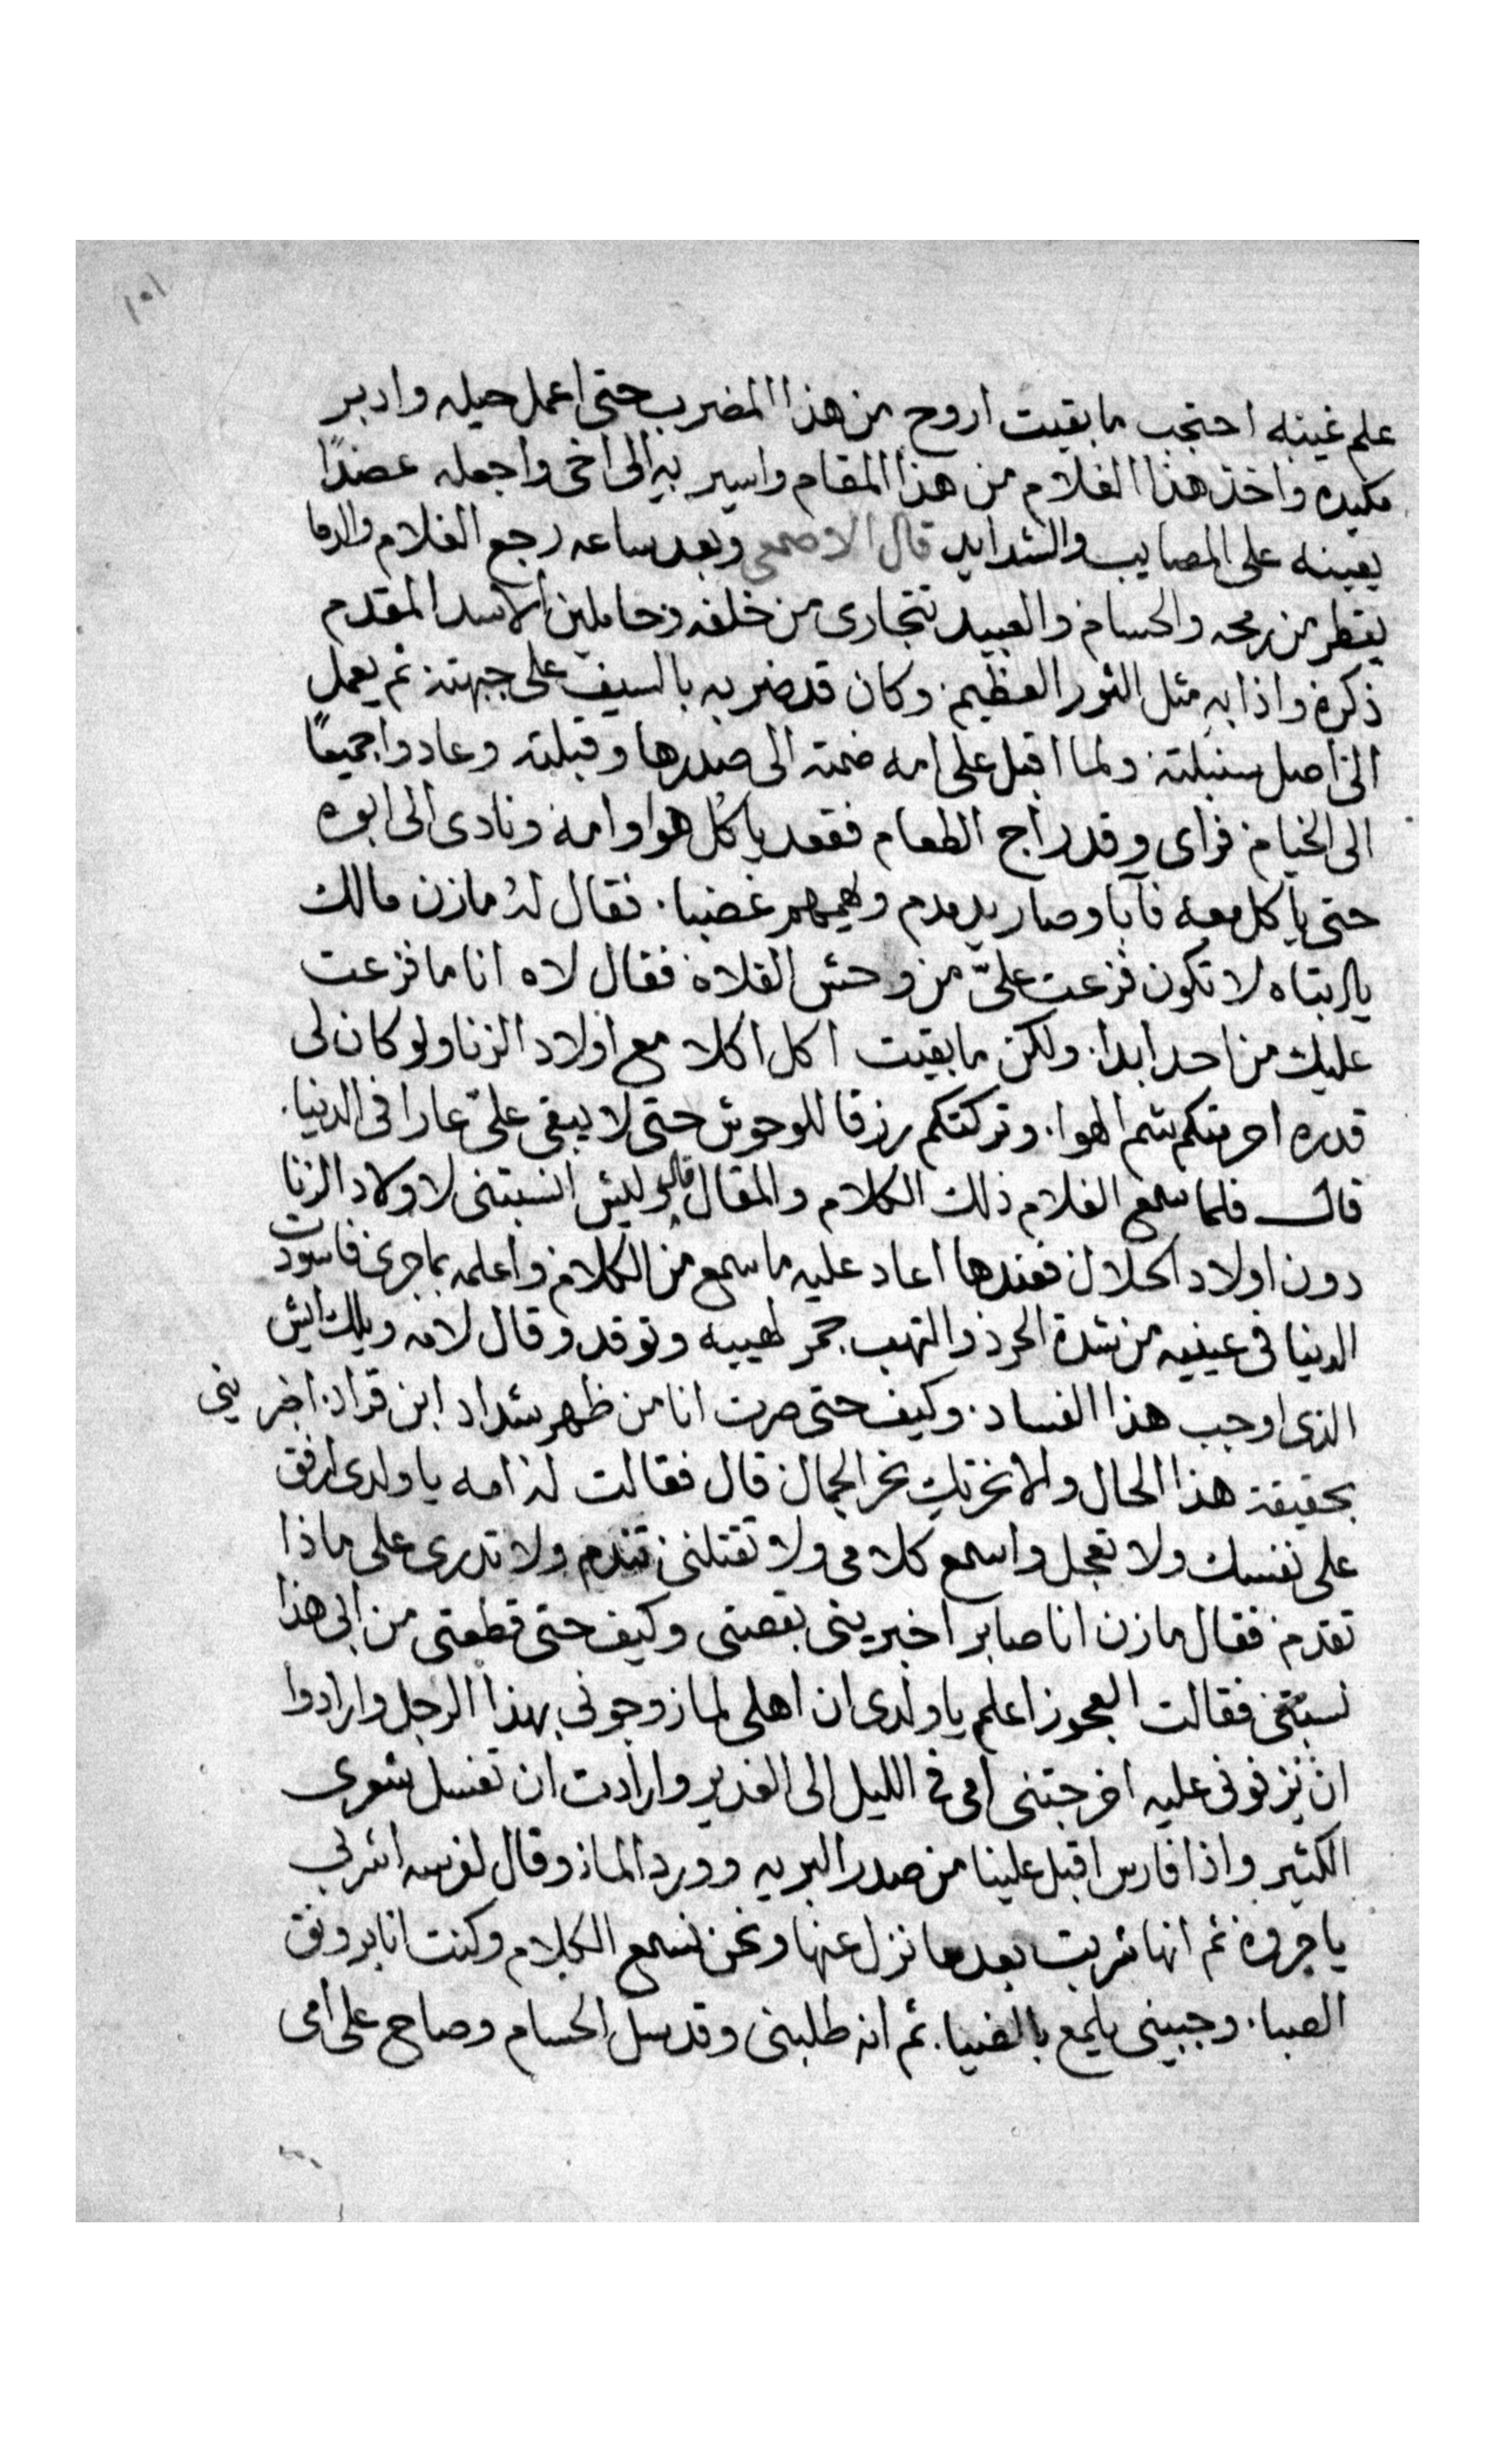 ١٠١
علم غيبه احتجب ما بقيت اروح من هذا المضرب حتى اعمل حيله وادبر
مكيده واخذ هذا الغلام من هذا المقام واسير به الى اخى واجعله عضدًا
يعينه على المصايب والشدايد قال الاصمعى وبعد ساعه رجع الغلام والدما
يقطر من رمحه والحسام والعبيد تتجارى من خلفه وحاملين الاسد المقدم
ذكره واذا به مثل الثور العظيم وكان قد ضربه بالسيف على جبهته ثم يعمل
الى اصل سنبلته ولما اقبل على امه ضمته الى صدرها وقبلته وعادوا جميعًا
الى الخيام فراى وقد راج الطعام فقعد ياكل هوا وامه ونادى الى ابوه
حتى ياكل معه فآبا وصار يدمدم ويهمهم غضبا فقال له مازن مالك
يا ابتاه لا تكون فزعت علىّ من وحش الفلاه فقال لاه انا ما فزعت
عليك من احد ابدا ولكن ما بقيت اكل اكلا مع اولاد الزنا ولو كان لى
قدره احرمتكم شم الهوا وتركتكم رزقا للوحوش حتى لا يبقى علىّ عارا فى الدنيا
قال فلما سمع الغلام ذلك الكلام والمقال قال وليش انسبتنى لاولاد الزنا
دون اولاد الحلال فعندها اعاد عليه ما سمع من الكلام واعلمه بما جرى فاسودت
الدنيا فى عينيه من شدة الحرد والتهب جمر لهيبه وتوقد وقال لامه ويلك ايش
الذى اوجب هذا الفساد وكيف حتى صرت انا من ظهر شداد ابن قراد اخبرينى
بحقيقة هذا الحال والا نحرتك نحر الجمال قال فقالت له امه يا ولدى ارفق
على نفسك ولا تعجل واسمع كلامى ولا تقتلنى تندم ولا تدرى على ماذا
تقدم فقال مازن انا صابر اخبرينى بقصتى وكيف حتى قطعتى من ابى هذا
نسبتى فقالت العجوز اعلم يا ولدى ان اهلى لما زوجونى بهذا الرجل وارادوا
ان يزفونى عليه اخرجتنى امى فى الليل الى الغدير وارادت ان تغسل شعرى
الكثير واذا فارس اقبل علينا من صدر البريه وورد الماء وقال لفرسه اشربى
يا جروه ثم انها شربت بعدما نزل عنها ونحن نسمع الكلام وكنت انا برونق
الصبا وجبينى يلمع بالضيا ثم انه طلبنى وقد سل الحسام وصاح على امى